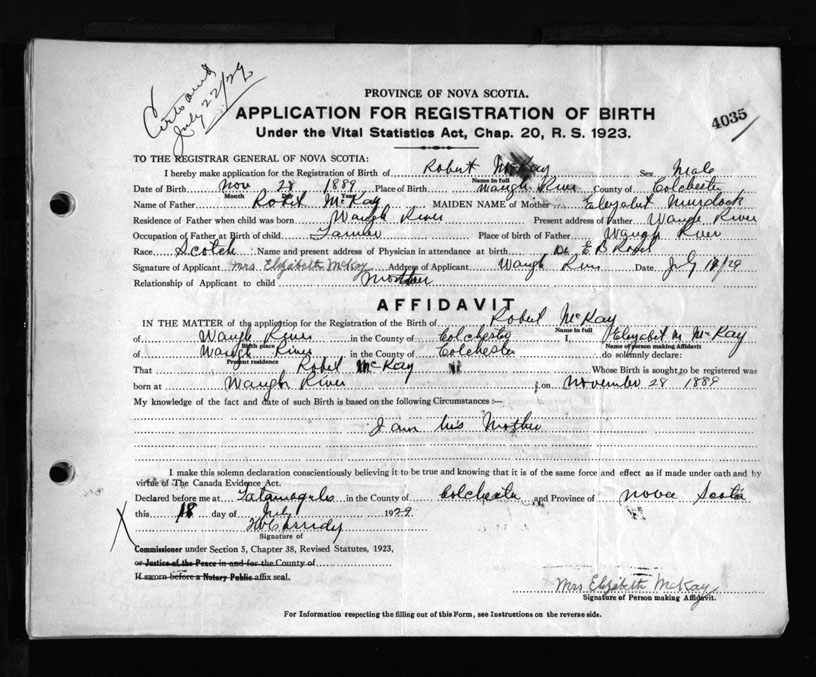 July 22/29
PROVINCE OF NOVA SCOTIA.
APPLICATION FOR REGISTRATION OF BIRTH
4035
Under the Vital Statistics Act, Chap. 20, R. S. 1923.
TO THE REGISTRAR GENERAL OF NOVA SCOTIA:
I hereby make application for the Registration of Birth of Robert McKay Sex Male
Name in full
Date of Birth Nov 28 1889 Place of Birth Waugh River County of Colchester
Month Day Year
Name of Father Robet McKay MAIDEN NAME of Mother Elezabet Murdock
Residence of Father when child was born Waugh River Present address of Father Waugh River
Occupation of Father at Birth of child Farmer Place of birth of Father Waugh River
Race Scotch Name and present address of Physician in attendance at birth Dr E B Roach
Signature of Applicant Mrs Elizabeth McKay Address of Applicant Waugh River Date July 18/29
Relationship of Applicant to child Mother
AFFIDAVIT
IN THE MATTER of the application for the Registration of the Birth of Robert McKay
Name in full
of Waugh River in the County of Colchester I, Elezabet M McKay
Birth place Name of person making Affidavit
of Waugh River in the County of Colchester do solemnly declare:
Present residence
That Robet McKay Whose Birth is sought to be registered was
born at Waugh River on November 28 1889
My knowledge of the fact and date of such Birth is based on the following Circumstances :—
I am his Mother
I make this solemn declaration conscientiously believing it to be true and knowing that it is of the same force and effect as if made under oath and by
virtue of The Canada Evidence Act.
Declared before me at in the County of Colchester and Province of Nova Scotia
this 18 day of July 1929
Signature of
Commissioner under Section 5, Chapter 38, Revised Statutes, 1923,
or Justice of the Peace in and for the County of
If sworn before a Notary Public affix seal.
Mrs Elizabeth McKay
Signature of Person making Affidavit.
For Information respecting the filling out of this Form, see Instructions on the reverse side.